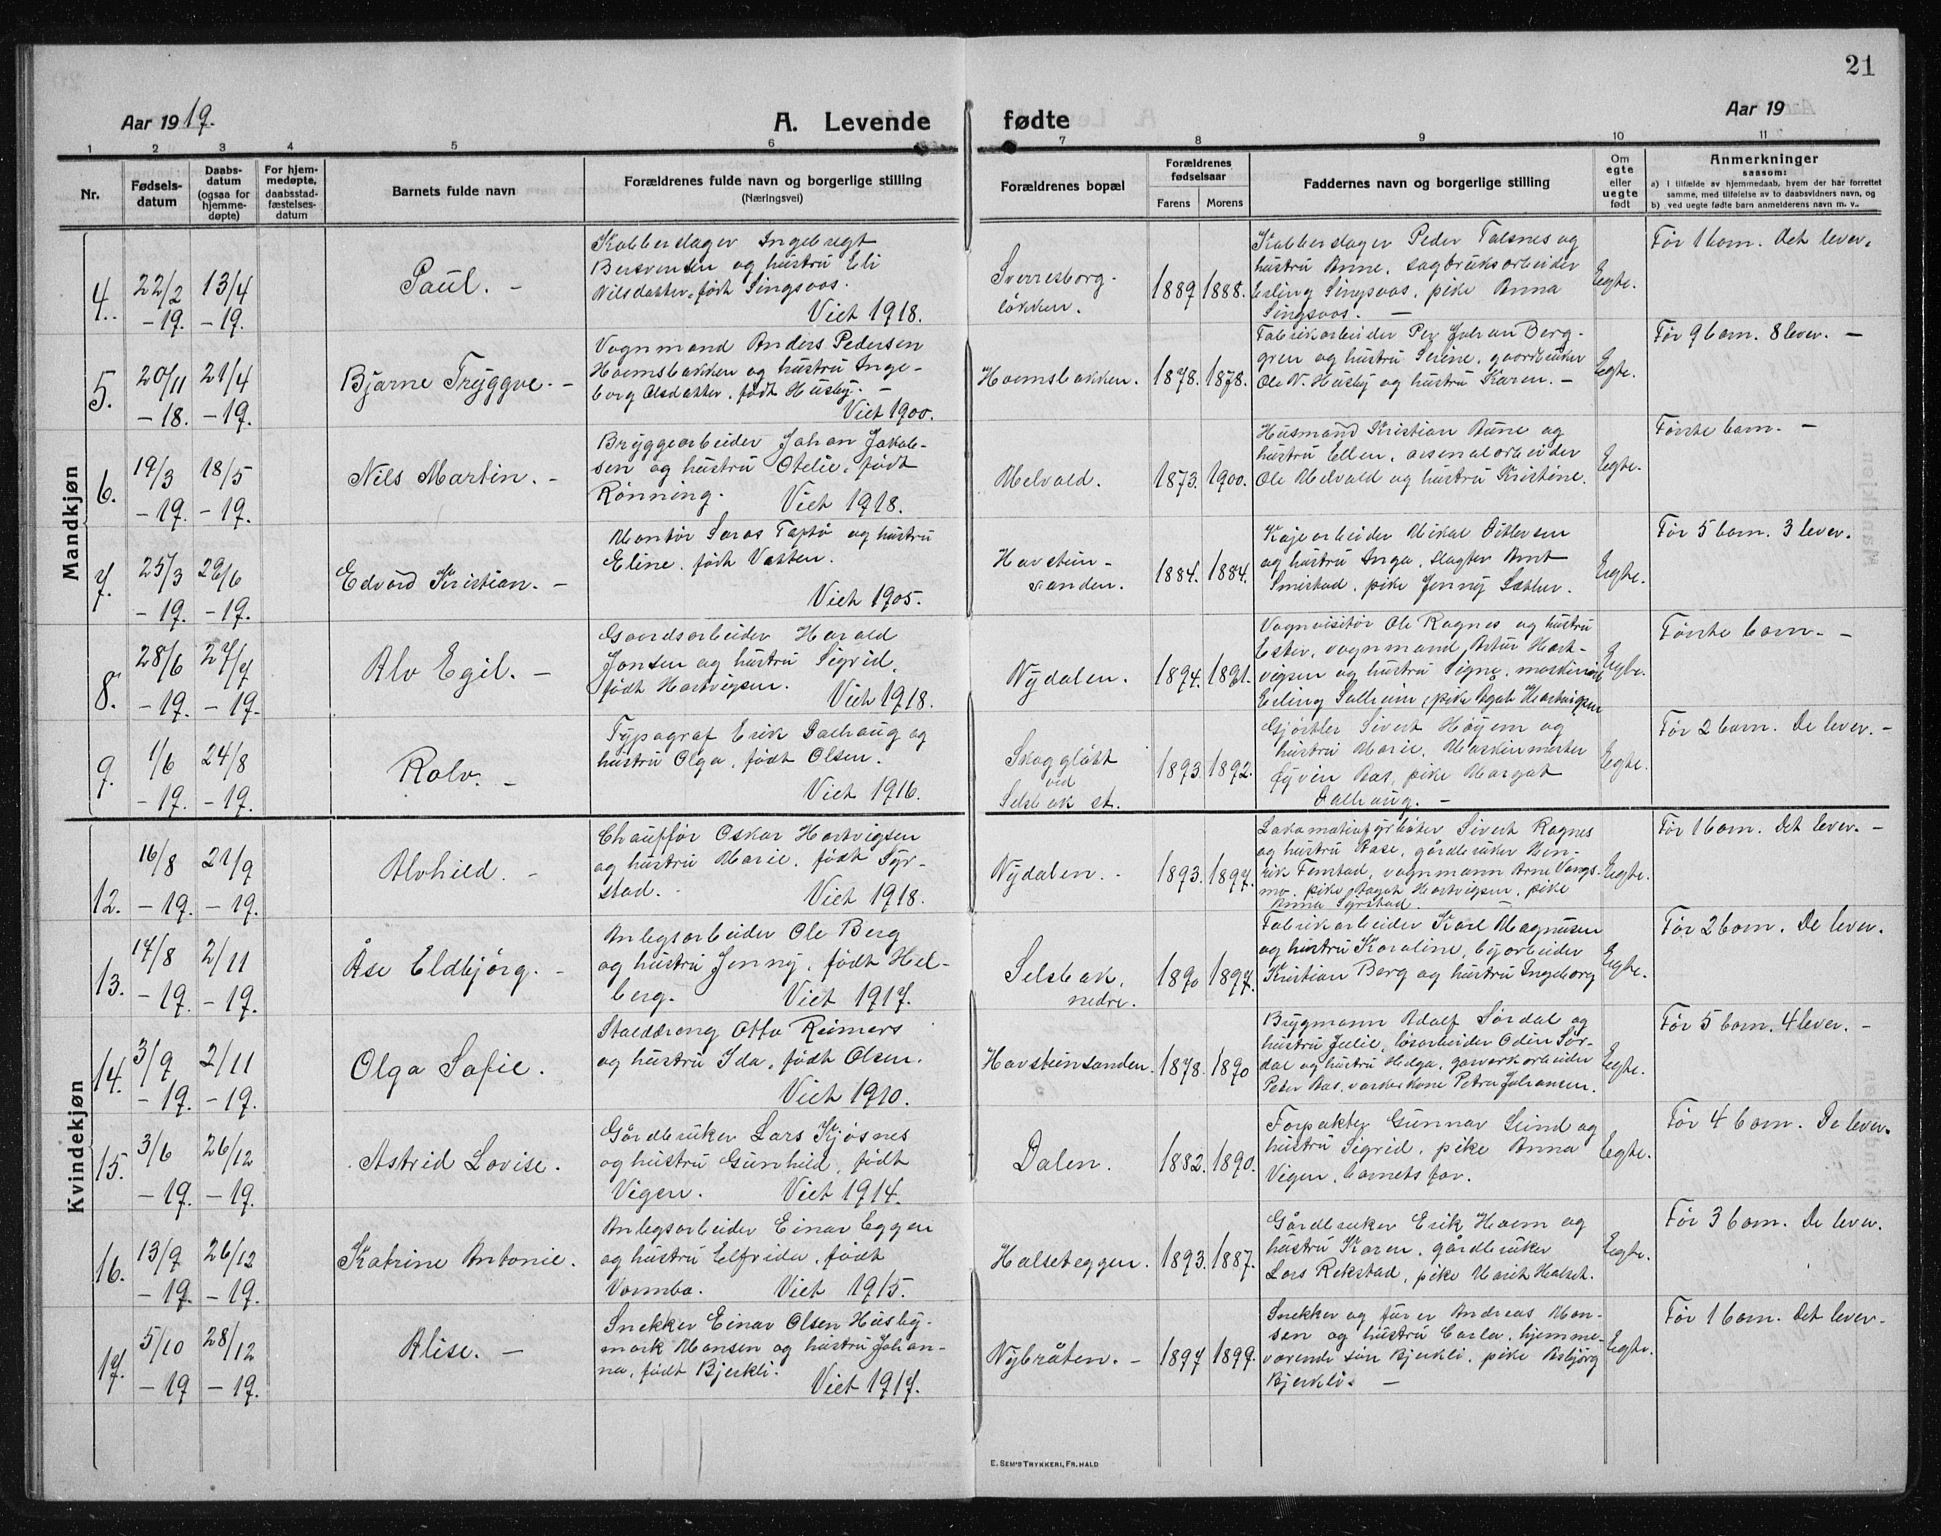 21
Aar 1919.
A. Levende fødte
Aar 19
1 2 3 4 5 6 7 8 9 10 11
Nr.
Fødsels-
datum
Daabs-
datum
(ogsaa for
hjemme-
døpte)
For hjem-
medøpte,
daabsstad-
fæstelses-
datum
Barnets fulde navn
Forældrenes fulde navn og borgerlige stilling
(Næringsvei)
Forældrenes bopæl
Forældrenes
fødselsaar
Farens Morens
Faddernes navn og borgerlige stilling
Om
egte
eller
uegte
født
Anmerkninger
saasom:
a) I tilfælde av hjemmedaab, hvem der har forrettet
samme, med tilføielse av to daabsvidners navn, og
b) ved uegte fødte barn anmelderens navn m. v.
Mandkjøn
4. 22/2 -19. 13/4 -19.
Paul. -
Kobberslager Ingebrigt
Bersvendsen og hustru Eli
Nilsdatter, født Singsaas.
Viet 1918.
Sverresborg-
løkken.
1889 1888.
Kobberslager Peder Talsnes og
hustru Anne, sagbruksarbeider
Erling Singsaas, pike Anna
Singsaas. -
Egte.
Før 1 barn. Det lever.
5. 20/11 -18. 21/4 -19.
Bjarne Tryggve. -
Vognmand Anders Pedersen
Hoemsbakken og hustru Inge-
borg Olsdatter, født Husby. -
Viet 1900.
Hoemsbakken.
1878. 1878.
Fabrikarbeider Per Johan Berg-
gren og hustru Serine, gaardbruker
Ole N. Husby og hustru Karen. -
Egte.
Før 9 barn. 8 lever. -
6. 19/3 -19. 18/5 -19.
Nils Martin. -
Bryggearbeider Johan Jakob-
sen og hustru Otelie, født
Rønning. Viet 1918.
Melvald.
1873. 1900.
Husmand Kristian Aune og
hustru Ellen, arsenalarbeider
Ole Melvald og hustru Kristine.
Egte.
Første barn. -
7. 25/3 -19. 22/6 -19.
Edvard Kristian. -
Montør Saras Taftø og hustru
Eline, født Vatten.
Viet 1905.
Havstein-
sanden.
1884. 1884.
Kajearbeider Mikal Ditlevsen
og hustru Inga, slagter Arnt
Smistad, pike Jenny Sæther.
Egte.
Før 5 barn. 3 lever.
8. 28/6 -19. 27/7 -19.
Alv Egil. -
Gaardsarbeider Harald
Jonsen og hustru Sigrid,
født Hartvigsen.
Viet 1918.
Nydalen.
1894. 1891.
Vognvisitør Ole Ragnes og hustru
Ester, vognmand Artur Hart-
vigsen og hustru Signe, maskinist
Erling Solheim, pike Agat Hartvigsen
Egte.
Første barn. -
9. 1/6 -19. 24/8 -19.
Rolv. -
Typograf Erik Dalhaug og
hustru Olga, født Olsen.
Viet 1916.
Skoggløtt
ved
Selsbak st.
1893. 1892.
Gjørtler Sivert Høyem og
hustru Marie, Maskinmester
Øyvin Aas, pike Margot
Dalhaug. -
Egte.
Før 2 barn. De lever. -
Kvindekjøn
12. 16/8 -19. 21/9 -19.
Alvhild. -
Chauffør Oskar Hartvigsen
og hustru Marie, født Syr-
stad. - Viet 1918.
Nydalen. -
1893. 1897.
Lokomotivfyrbøter Sivert Ragnes
og hustru Aase, gårdbruker Hen-
rik Fenstad, vognmann Arne Vangs-
mo, pike Agat Hartvigsen, pike
Anna Syrstad.
Egte.
Før 1 barn. Det lever. -
13. 17/8 -19. 2/11 -19.
Åse Eldbjørg. -
Anlegsarbeider Ole Berg
og hustru Jenny, født Hel-
berg. Viet 1917.
Selsbak,
nedre.
1890 1897.
Fabrikarbeider Karl Magnusen
og hustru Karoline, byarbeider
Kristian Berg og hustru Ingeborg
Egte.
Før 2 barn. De lever.
14. 3/9 -19. 2/11 -19.
Olga Sofie.
Stalddreng Otto Reimers
og hustru Ida, født Olsen.
Viet 1910.
Havsteinsanden.
1878. 1890
Brygmann Adolf Sørdal og
hustru Julie, løsarbeider Odin Sør-
dal og hustru Helga, gasverkarbeider
Peter Aas, vaskekone Petra Johansen.
Egte.
Før 5 barn. 4 lever. -
15. 3/6 -19. 26/12 -19.
Astrid Lovise.
Gårdbruker Lars Kjøsnes
og hustru Gunhild, født
Vigen. Viet 1914.
Dalen.
1882. 1890.
Forpakter Gunnar Lund og
hustru Sigrid, pike Anna
Vigen, barnets far.
Egte.
Før 4 barn. De lever.
16. 13/9 -19. 26/12 -19.
Katrine Antonie.
Anlegsarbeider Einar Eggen
og hustru Elfrida, født
Vormbo. Viet 1915.
Halseteggen.
1893. 1887.
Gårdbruker Erik Hoem og
hustru Karen, gårdbruker
Lars Rekstad, pike Marit Halset.
Egte.
Før 3 barn. De lever.
17. 5/10 -19 28/12 -19.
Alise. -
Snekker Einar Olsen Husby-
mark Monsen og hustru Johan-
na, født Bjerkli.
Viet 1917.
Nybråten. -
1897 1899.
Snekker og fører Andreas Mon-
sen og hustru Carla, hjemme-
værende søn Bjerkli, pike Asbjørg
Bjerkli. -
Egte.
Før 1 barn. Det lever.
E. SEM'S TRYKKERI, FR.HALD